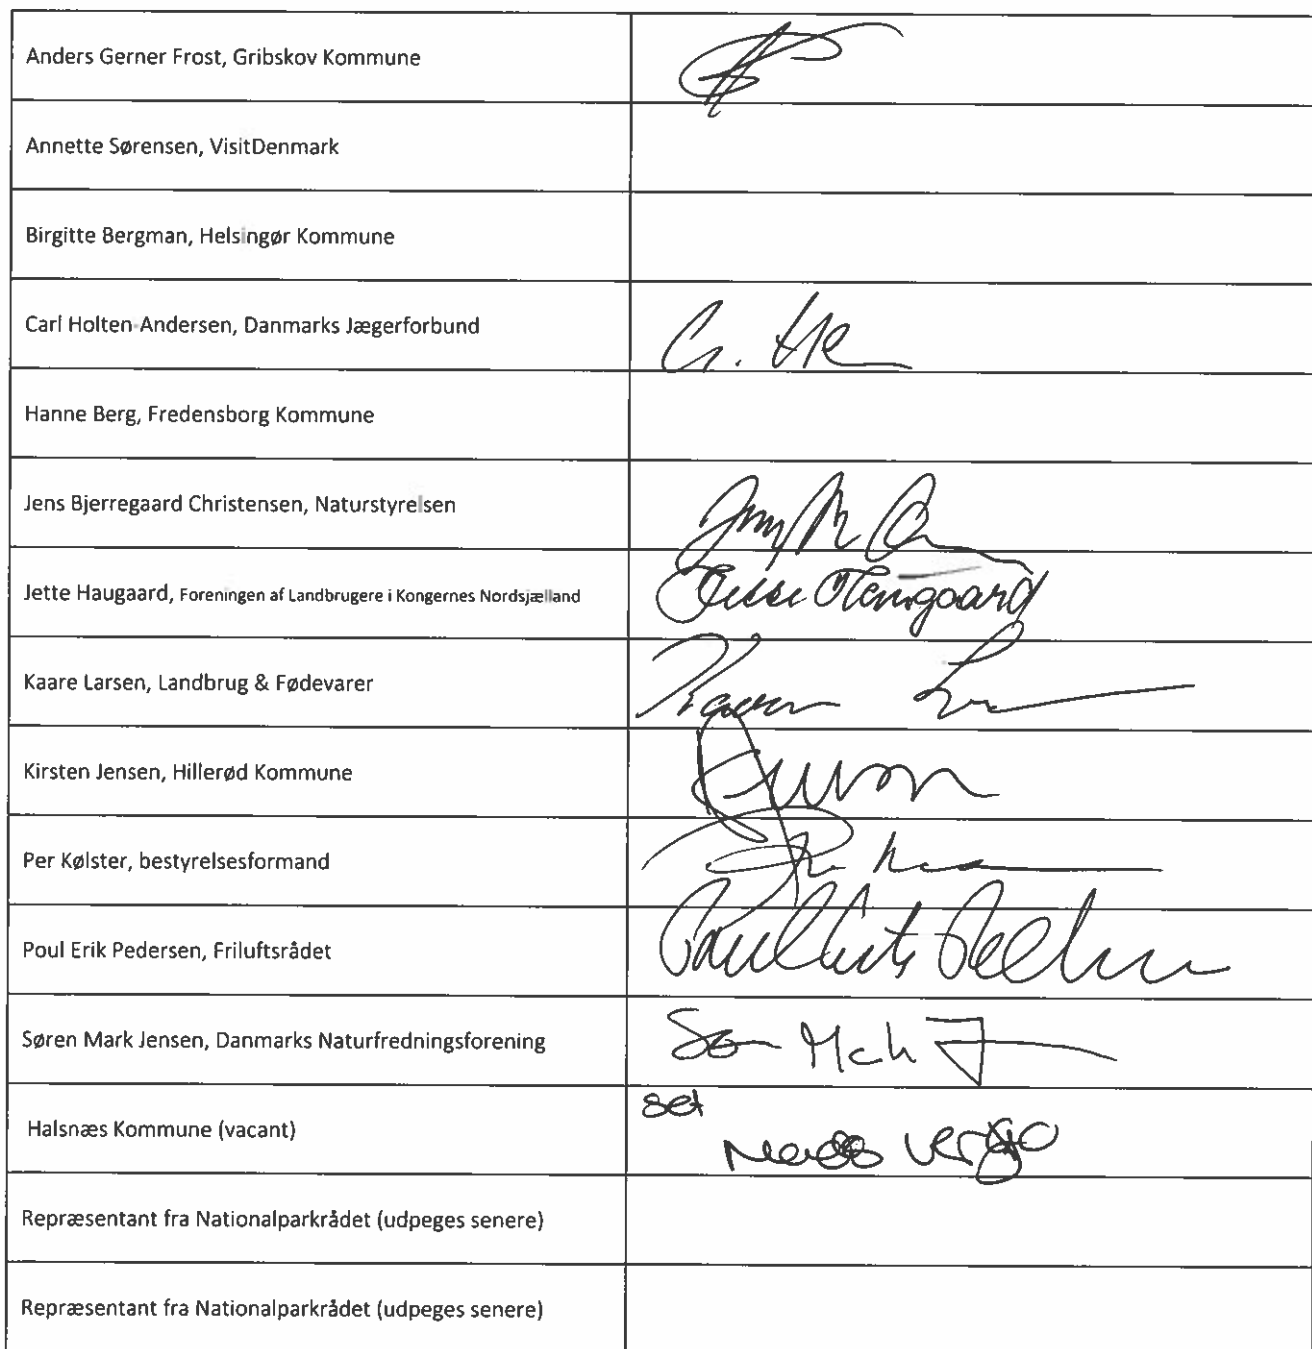 Anders Gerner Frost, Gribskov Kommune
Annette Sørensen, VisitDenmark
Birgitte Bergman, Helsingør Kommune
Carl Holten-Andersen, Danmarks Jægerforbund
Hanne Berg, Fredensborg Kommune
Jens Bjerregaard Christensen, Naturstyrelsen
Jette Haugaard, Foreningen af Landbrugere i Kongernes Nordsjælland
Kaare Larsen, Landbrug & Fødevarer
Kirsten Jensen, Hillerød Kommune
Per Kølster, bestyrelsesformand
Poul Erik Pedersen, Friluftsrådet
Søren Mark Jensen, Danmarks Naturfredningsforening
Halsnæs Kommune (vacant)
set
Repræsentant fra Nationalparkrådet (udpeges senere)
Repræsentant fra Nationalparkrådet (udpeges senere)